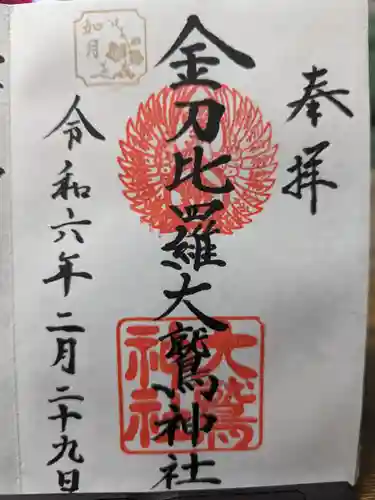 奉拝
金刀比羅大鷲神社
大鷲
神社
令和六年二月二十九日
如月